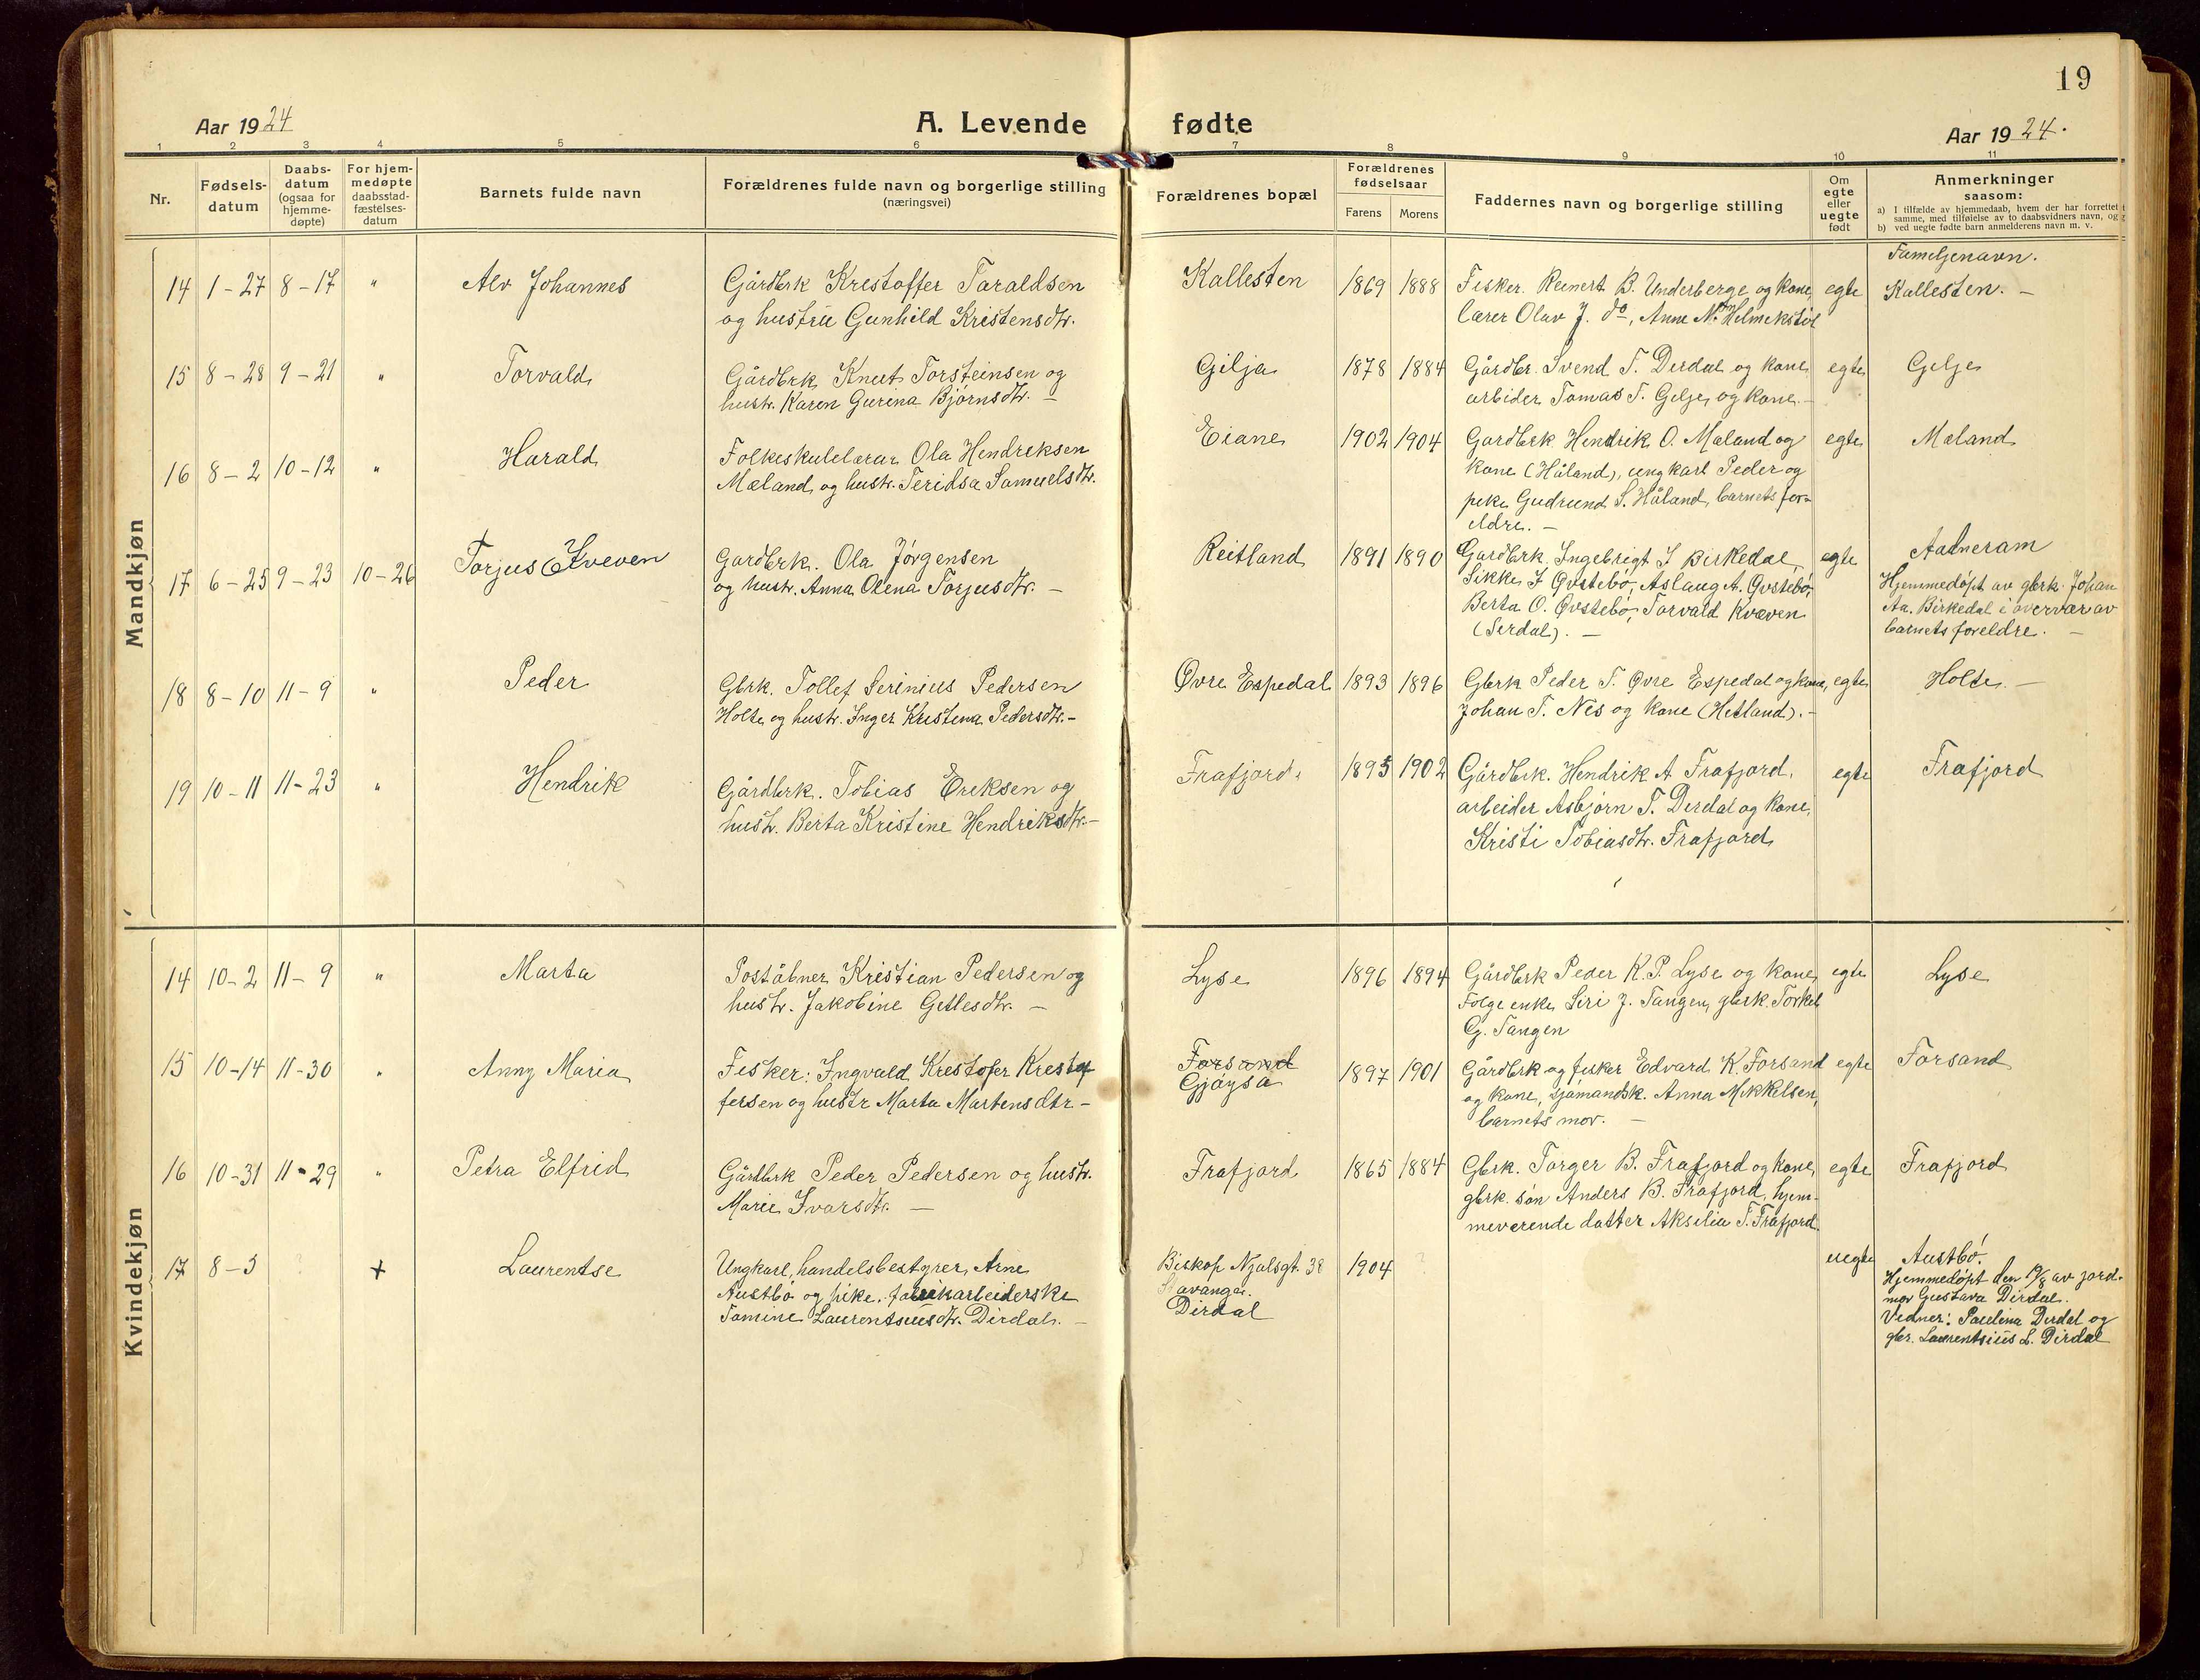 19
Aar 1924
A. Levende fødte
Aar 1924.
1 2 3 4 5 6 7 8 9 10 11
Nr.
Fødsels-
datum
Daabs-
datum
(ogsaa for
hjemme-
døpte)
For hjem-
medøpte
daabsstad-
fæstelses-
datum
Barnets fulde navn
Forældrenes fulde navn og borgerlige stilling
(næringsvei)
Forældrenes bopæl
Forældrenes
fødselsaar
Farens Morens
Faddernes navn og borgerlige stilling
Om
egte
eller
uegte
født
Anmerkninger
saasom:
a) I tilfælde av hjemmedaab, hvem der har forrettet
samme, med tilføielse av to daabsvidners navn, og
b) ved uegte fødte barn anmelderens navn m. v.
Mandkjøn
14 1-27 8-17 " Alv Johannes
Gårdbrk Krestoffer Taraldsen
og hustru Gunhild Kristensdtr.
Kallesten 1869 1888
Fisker. Reinert B. Underberge og kone,
lærer Olav J. do, Anne N. Helmikstøl
egte
Familjenavn.
Kallesten. -
15 8-28 9-21 " Torvald
Gårdbrk Knut Torsteinsen og
hustr. Karen Gurena Bjørnsdtr. -
Gilja 1878 1884
Gårdbr. Svend T. Dirdal og kone,
arbider Tomas T. Gilje og kone. -
egte Gilje
16 8-2 10-12 " Harald
Folkeskulelærar Ola Hendreksen
Mæland og hustr. Teridsa Samuelsdtr.
Eiane 1902 1904
Gardbrk Hendrik O. Mæland og
kone (Håland), ungkarl Peder og
pike Gudrund S. Håland, barnets for-
eldre. -
egte Mæland
17 6-25 9-23 10-26 Torjus Kveven
Gardbrk. Ola Jørgensen
og hustr. Anna Olena Torjusdtr. -
Reitland 1891 1890
Gardbrk. Ingebrigt I Birkedal,
Sikke I Øvstebø, Aslaug A. Øvstebø,
Berta O. Øvstebø, Torvald Kvæven
(Serdal). -
egte
Aadneram
Hjemmedøpt av gbrk. Johan
Aa. Birkedal i overvær av
barnets foreldre. -
18 8-10 11-9 " Peder
Gbrk. Tollef Serinius Pedersen
Holte og hustr. Inger Kristina Pedersdtr. -
Øvre Espedal 1893 1896
Gbrk Peder T. Øvre Espedal og kone,
Johan T. Nes og kone (Hetland). -
egte Holte. -
19 10-11 11-23 " Hendrik
Gårdbrk. Tobias Eriksen og
hustr. Berta Kristine Hendriksdtr. -
Frafjord. 1895 1902
Gårdbrk. Hendrik A Frafjord,
arbeider Asbjørn T. Dirdal og kone,
Kristi Tobiasdtr. Frafjord
egte Frafjord
Kvindekjøn
14 10-2 11-9 " Marta
Poståbner Kristian Pedersen og
hustr. Jakobine Getlesdtr. -
Lyse 1896 1894
Gårdbrk Peder K. P. Lyse og kone
Folge enke Siri J. Tangen, gbrk. Torkel
G. Tangen
egte Lyse
15 10-14 11-30 " Anny Maria
Fisker: Ingvald Krestofer Krestof
fersen og hustr Marta Martensdtr -
Forsand
Gjøysa
1897 1901
Gårdbrk og fisker Edvard K. Forsand
og kone, sjømandsk. Anna Mikkelsen,
barnets mor. -
egte Forsand
16 10-31 11-29 " Petra Elfrid
Gårdbrk Peder Pedersen og hustr.
Marie Ivarsdtr. -
Frafjord 1865 1884
Gbrk. Torger B. Frafjord og kone,
gbrk. søn Anders B. Frafjord, hjem-
meverende datter Aksilia T. Frafjord.
egte Frafjord
17 8-3 + Laurentse
Ungkarl, handelsbestyrer, Arne
Austbø og pike, fabrikarbeiderske
Tomine Laurentsiusdtr. Dirdal. -
Biskop Njalsgt. 38
Stavanger.
Dirdal
1904
uegte
Austbø.
Hjemmedøpt den 19/8 av jord-
mor Gustava Dirdal.
Vidner: Paulina Dirdal og
gbr. Laurentsius L. Dirdal